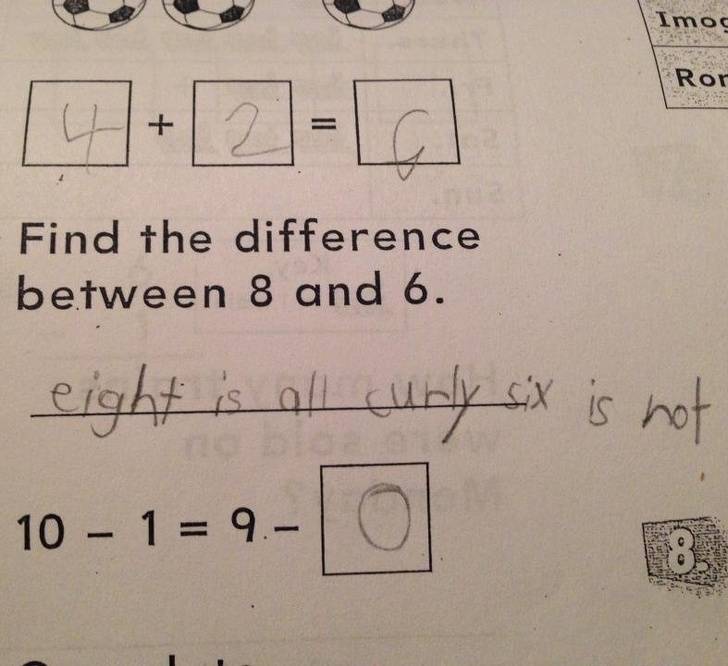 Imog
Ror
4 + 2 = 6
Find the difference
between 8 and 6.
eight is all curly six is not
10 - 1 = 9 - 0
8.